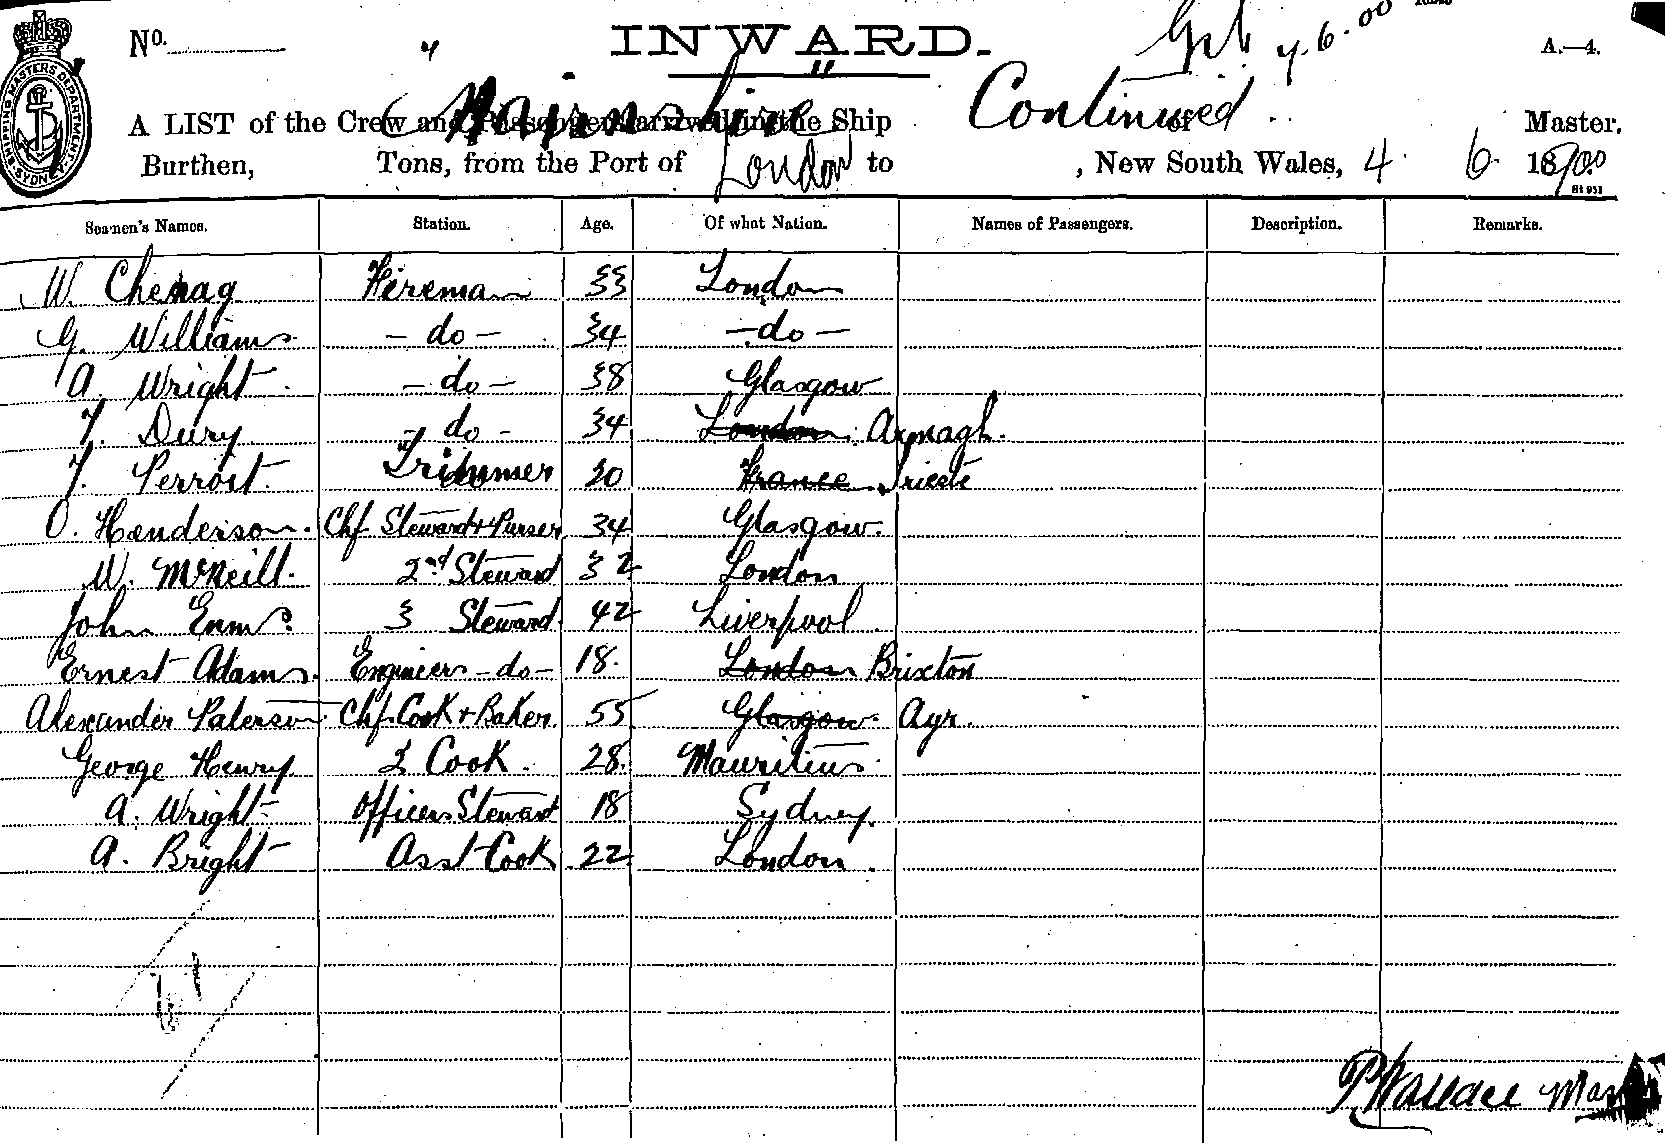 SHIPPING MASTERS DEPARTMENT SYDNEY
No. 4 INWARD. 4.6.00 A.—4.
" Nairnshire " Continued
A LIST of the Crew and Passengers arrived in the Ship of Master,
Burthen, Tons, from the Port of London to , New South Wales, 4. 6. 1900
Seamen's Names. Station. Age. Of what Nation. Names of Passengers. Description. Remarks.
W. Fireman 33 London
G. Williams – do – 34 – do –
A. Wright – do – 38 Glasgow
T. Dury – do – 34 London Armagh.
Trimmer 20 France Trieste
O. Henderson. Chf Steward & Purser 34 Glasgow.
W. McNeill. 2nd Steward 32 London
John 3 Steward. 42 Liverpool
Ernest Adams. Engineers – do – 18. London Brixton
Alexander Paterson Chf Cook & Baker. 55 Glasgow. Ayr.
George Henry 2 Cook. 28. Mauritius.
A. Wright Officers Steward 18 Sydney.
A. Bright Asst Cook 22 London.
61
P Wallace